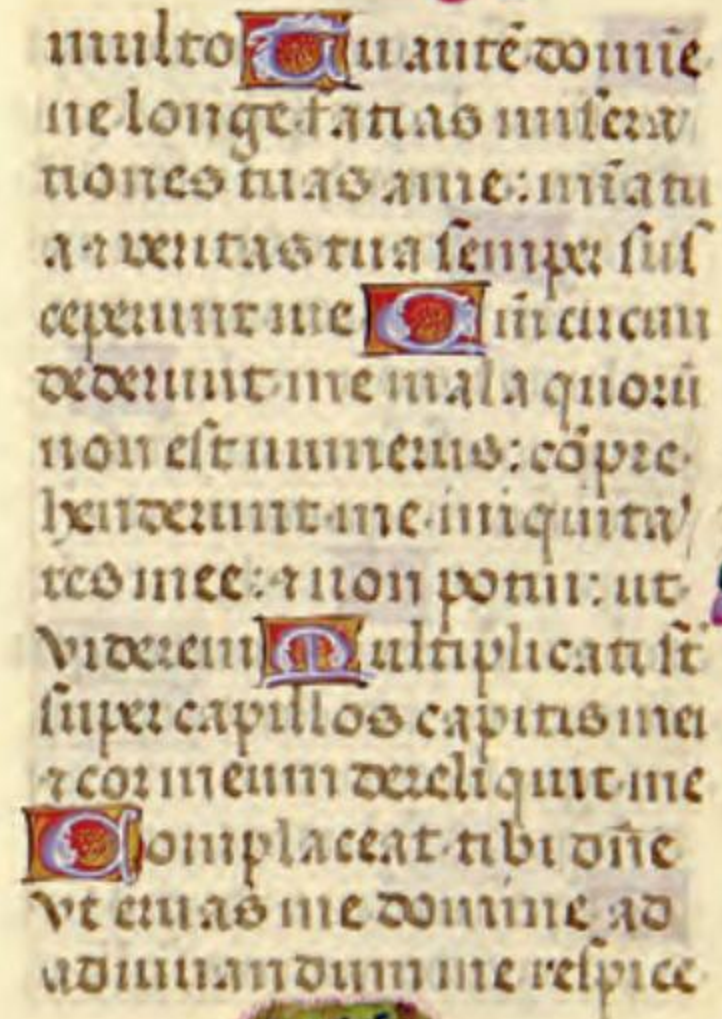 multo Tu autē domīe
ne longe facias misera
tiones tuas a me: mīa tu
a ⁊ veritas tua semper sus
ceperunt me Qm̄ circum
dederunt me mala quorū
non est numerus: cōpre
henderunt me iniquita
tes mee: ⁊ non potui: ut
viderem Multiplicati sūt
super capillos capitis mei
⁊ cor meum dereliquit me
Complaceat tibi dñe
vt eruas me domine ad
adiuuandum me respice